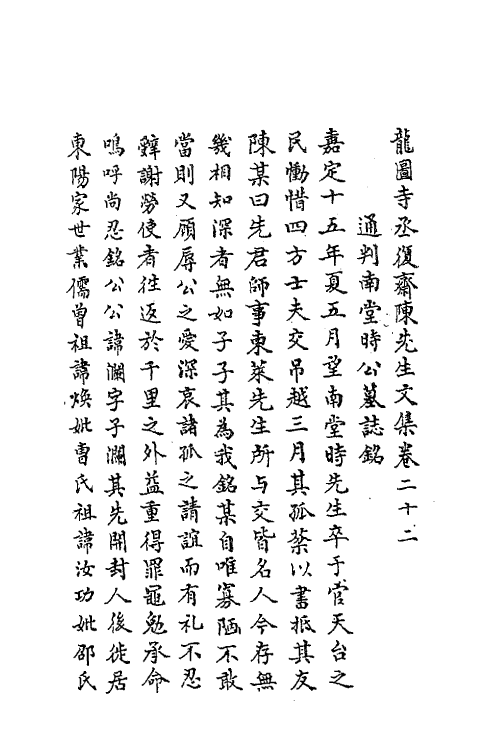 龍圖寺丞復齋陳先生文集卷二十二
通判南堂時公墓誌銘
嘉定十五年夏五月望南堂時先生卒于官天台之
民慟惜四方士夫交吊越三月其孤棻以書抵其友
陳某曰先君師事東萊先生所与交皆名人今存無
幾相知深者無如子子其為我銘某自唯寡陋不敢
當則又顧辱公之愛深哀諸孤之請誼而有礼不忍
辭謝勞使者徃返於千里之外益重得罪黽勉承命
嗚呼尚忍銘公公諱瀾字子瀾其先開封人後徙居
東陽家世業儒曾祖諱煥妣曹氏祖諱汝功妣邵氏